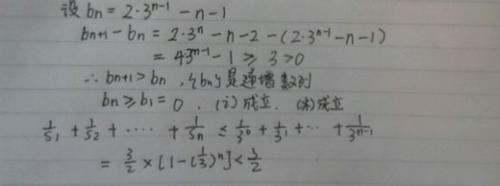 设 bn = 2·3^{n-1} - n - 1
b_{n+1} - bn = 2·3^n - n - 2 - (2·3^{n-1} - n - 1)
= 4·3^{n-1} - 1 ≥ 3 > 0
∴ b_{n+1} > bn , {bn} 是递增数列
bn ≥ b1 = 0 . (i) 成立. (*)成立
1/S1 + 1/S2 + ····· + 1/Sn ≤ 1/3^0 + 1/3^1 + ··· + 1/3^{n-1}
= 3/2 × [1 - (1/3)^n] < 3/2